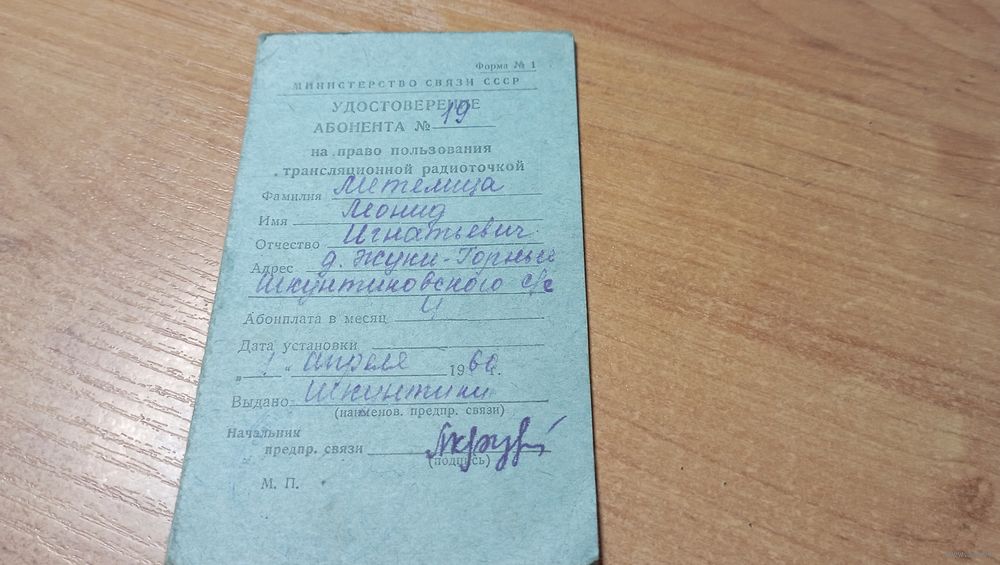 Форма № 1
МИНИСТЕРСТВО СВЯЗИ СССР
УДОСТОВЕРЕНИЕ
АБОНЕНТА № 19
на право пользования
трансляционной радиоточкой
Фамилия Метелица
Имя Леонид
Отчество Игнатьевич
Адрес д. Жуки-Горные
Шкунтиковского с/с
Абонплата в месяц
Дата установки
„ 1 “ апреля 1960 г.
Выдано Шкунтики
(наименов. предпр. связи)
Начальник
предпр. связи
(подпись)
М. П.